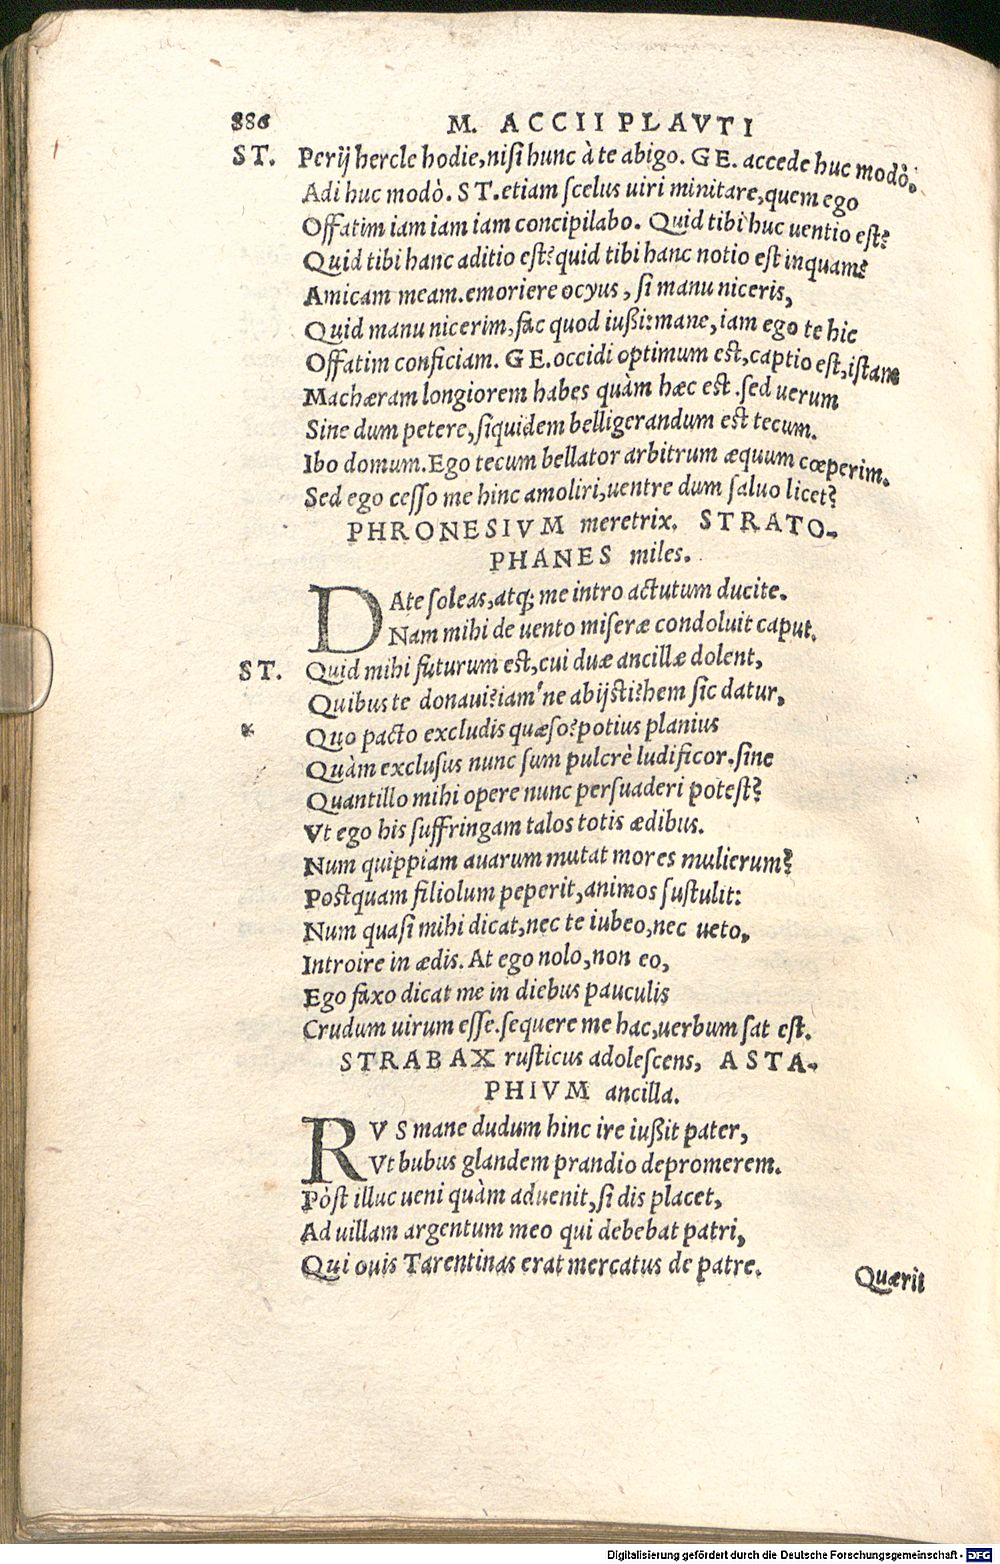 886 M. ACCII PLAVTI
ST. Perij hercle hodie, nisi hunc à te abigo. GE. accede huc modò.
Adi huc modò. ST. etiam scelus uiri minitare, quem ego
Offatim iam iam iam concipilabo. Quid tibi huc uentio est?
Quid tibi hanc aditio est? quid tibi hanc notio est inquam?
Amicam meam. emoriere ocyus, si manu niceris,
Quid manu nicerim, fac quod iußi: mane, iam ego te hic
Offatim conficiam. GE. occidi optimum est, captio est, istam
Machæram longiorem habes quàm hæc est. sed uerum
Sine dum petere, siquidem belligerandum est tecum.
Ibo domum. Ego tecum bellator arbitrum æquum cœperim.
Sed ego cesso me hinc amoliri, uentre dum saluo licet?
PHRONESIVM meretrix. STRATO-
PHANES miles.
DAte soleas, atq; me intro actutum ducite.
Nam mihi de uento miseræ condoluit caput.
ST. Quid mihi futurum est, cui duæ ancillæ dolent,
Quibus te donaui? iam'ne abijsti? hem sic datur,
* Quo pacto excludis quæso? potius planius
Quàm exclusus nunc sum pulcrè ludificor. sine
Quantillo mihi opere nunc persuaderi potest?
Vt ego his suffringam talos totis ædibus.
Num quippiam auarum mutat mores mulierum?
Postquam filiolum peperit, animos sustulit:
Num quasi mihi dicat, nec te iubeo, nec ueto,
Introire in ædis. At ego nolo, non eo,
Ego faxo dicat me in diebus pauculis
Crudum uirum esse. sequere me hac, uerbum sat est.
STRABAX rusticus adolescens, ASTA-
PHIVM ancilla.
RVS mane dudum hinc ire iußit pater,
Vt bubus glandem prandio depromerem.
Pòst illuc ueni quàm aduenit, si dis placet,
Ad uillam argentum meo qui debebat patri,
Qui ouis Tarentinas erat mercatus de patre.
Quærit
Digitalisierung gefördert durch die Deutsche Forschungsgemeinschaft - DFG